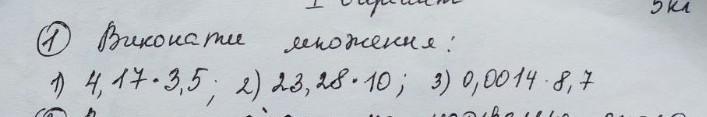 І варіант 5кл
① Виконати множення:
1) 4,17·3,5; 2) 23,28·10; 3) 0,0014·8,7